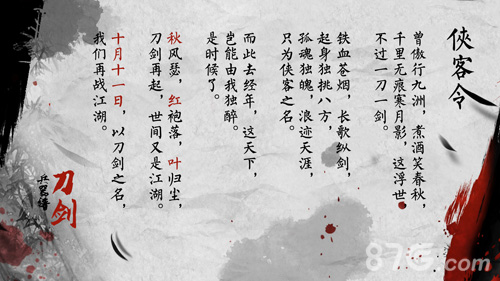 俠客令
曾傲行九洲，煮酒笑春秋，
千里无痕寒月影，这浮世，
不过一刀一剑。
铁血苍烟，长歌纵剑，
起身独挑八方，
孤魂独魄，浪迹天涯，
只为侠客之名。
而此去经年，这天下，
岂能由我独醉。
是时候了。
秋风瑟，红袍落，叶归尘，
刀剑再起，世间又是江湖。
十月十一日，以刀剑之名，
我们再战江湖。
刀剑
兵器谱
87G.com